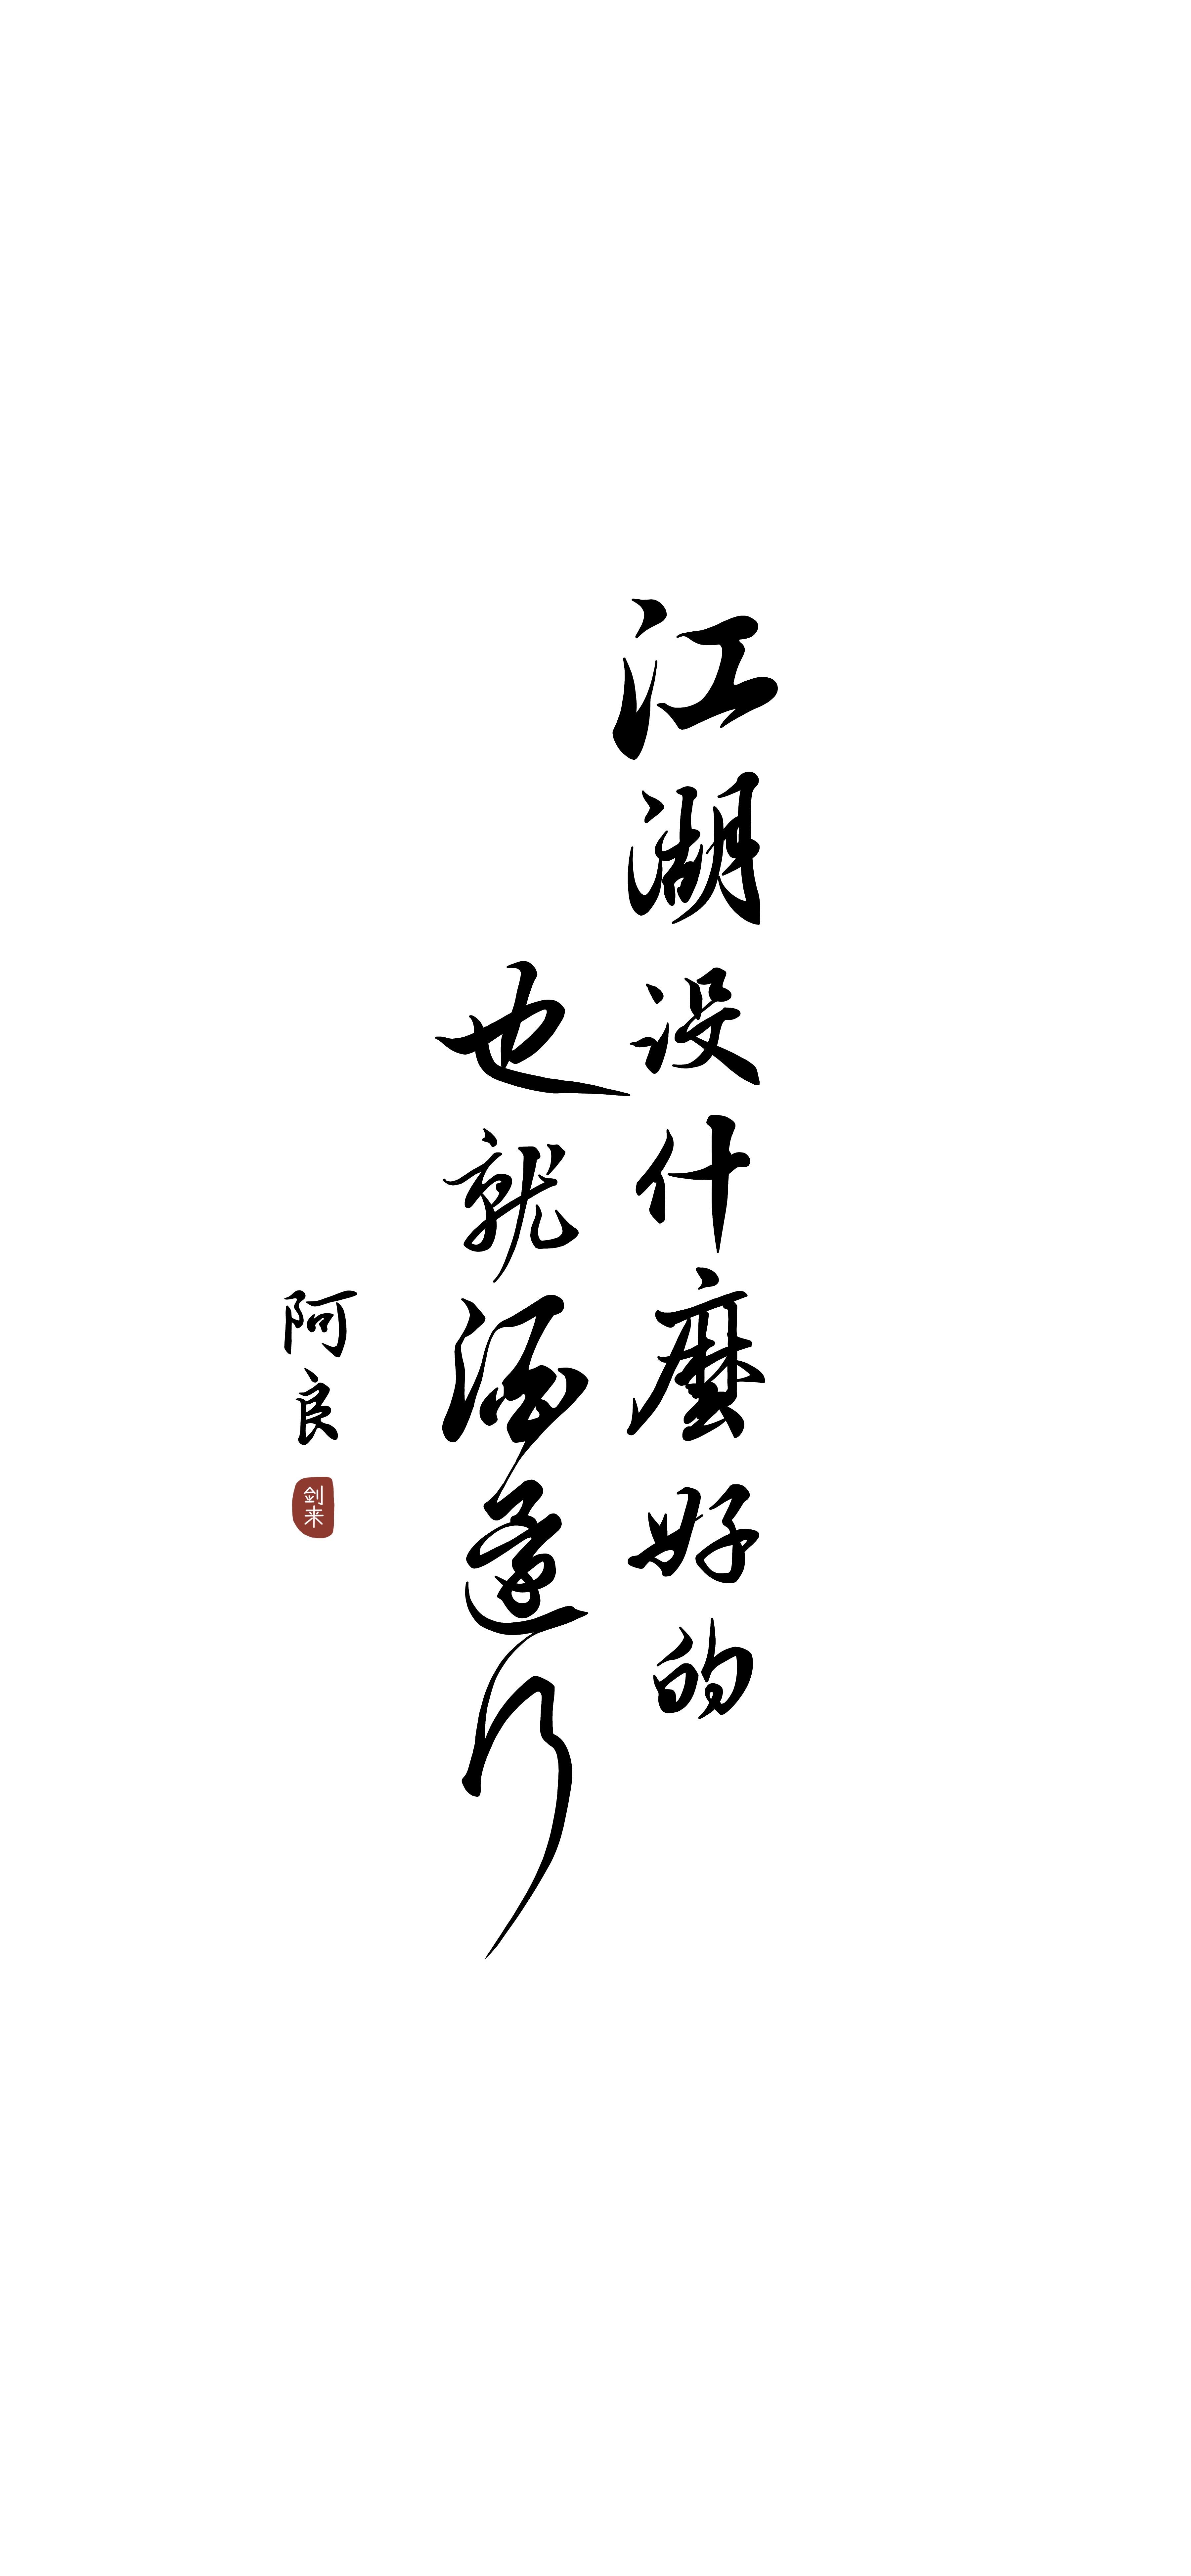 江湖设什麼好的
也就酒還行
阿良
剑来